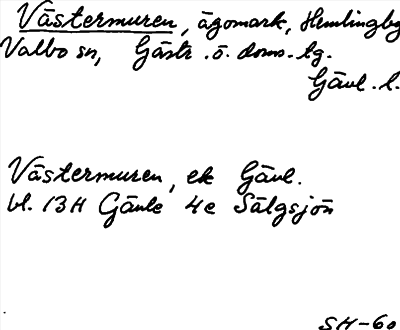 Västermuren, ägomark, Hemlingby
Valbo sn, Gästr. ö. doms. lg.
Gävl. l.
Västermuren, ek Gävl.
bl. 13H Gävle 4e Sälgsjön
SH-60